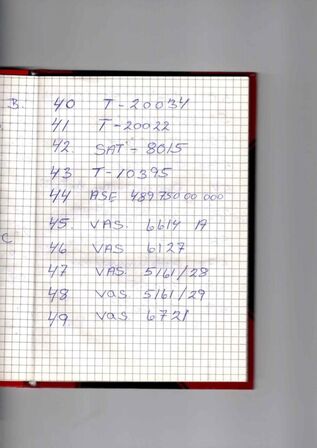 B. 40 T-20034
41 T-20022
42. SAT-8015
43 T-10395
44 ASE 489750 00 000
45. VAS. 6614 A
C 46 VAS 6127
47 VAS. 5161/28
48 VAS 5161/29
49. VAS 6721